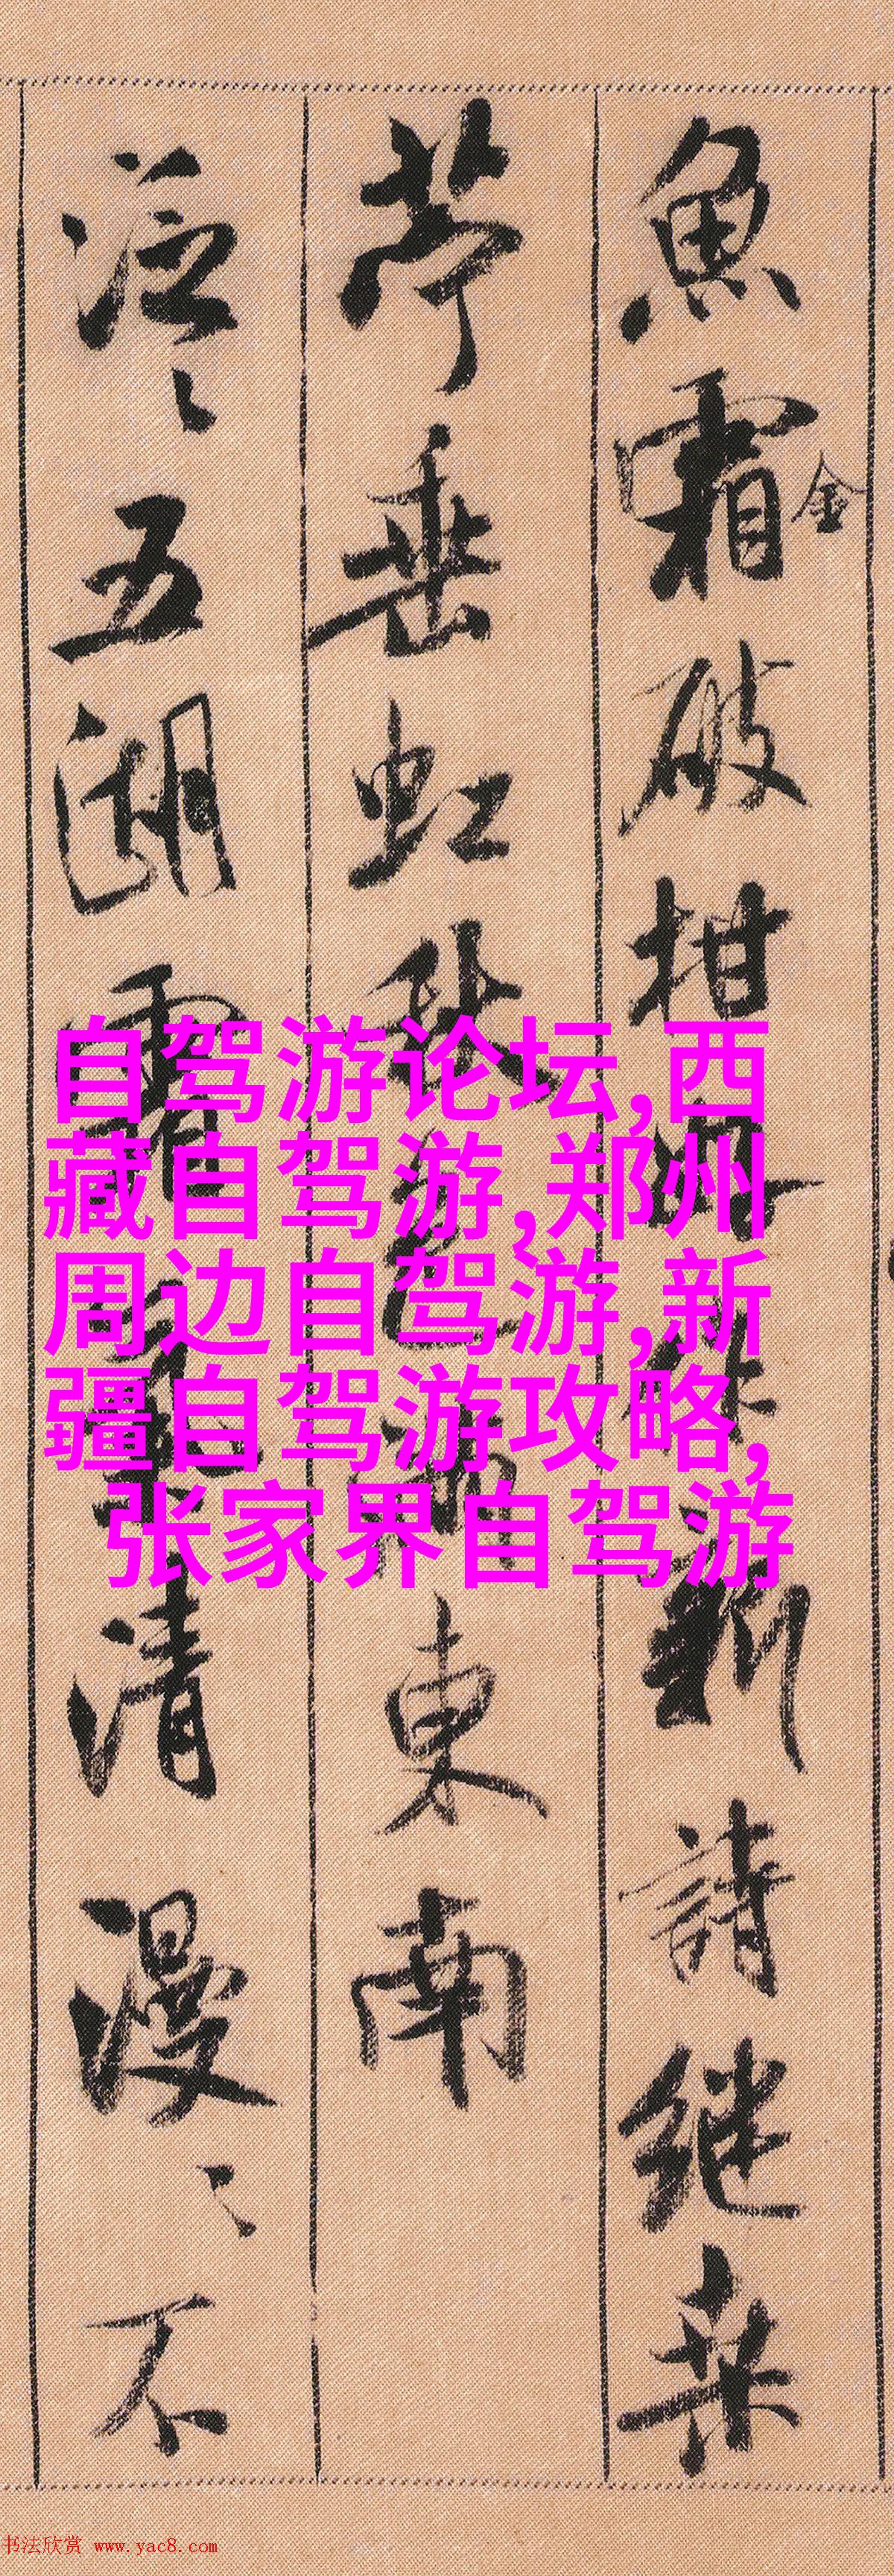 魚霜破柑好作新詩継桒
金
苧垂虹秋色滿東南
泛〻五湖霜氣清漫〻不
自驾游论坛,西
藏自驾游,郑州
周边自驾游,新
疆自驾游攻略,
张家界自驾游
书法欣赏 www.yac8.com